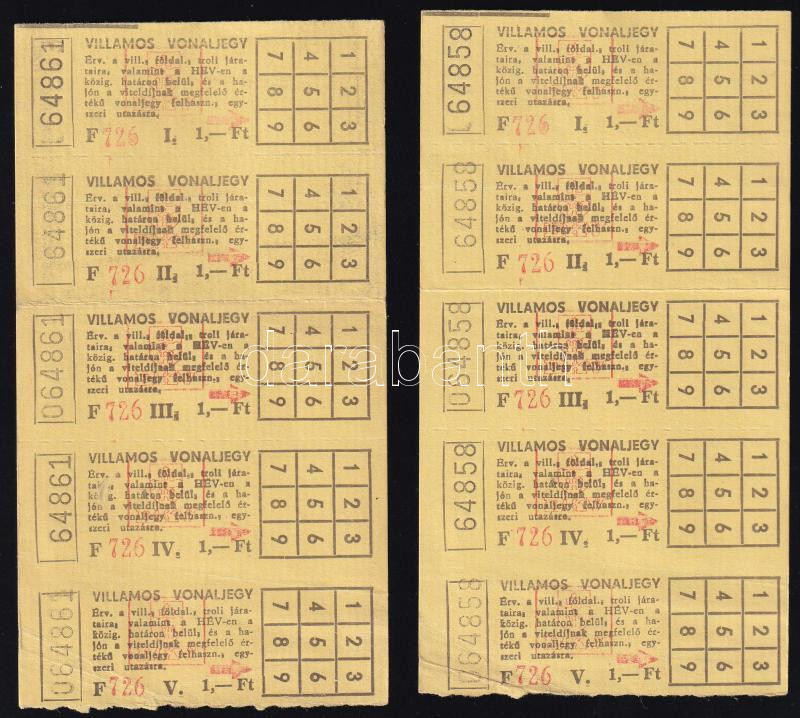 64861
VILLAMOS VONALJEGY
Érv. a vill., földal., troli jára-
taira, valamint a HÉV-en a
közig. határon belül, és a ha-
jón a viteldíjnak megfelelő ér-
tékű vonaljegy felhaszn., egy-
szeri utazásra.
F 726 I. 1,— Ft
1 2 3
4 5 6
7 8 9
64861
VILLAMOS VONALJEGY
Érv. a vill., földal., troli jára-
taira, valamint a HÉV-en a
közig. határon belül, és a ha-
jón a viteldíjnak megfelelő ér-
tékű vonaljegy felhaszn., egy-
szeri utazásra.
F 726 II. 1,— Ft
1 2 3
4 5 6
7 8 9
064861
VILLAMOS VONALJEGY
Érv. a vill., földal., troli jára-
taira, valamint a HÉV-en a
közig. határon belül, és a ha-
jón a viteldíjnak megfelelő ér-
tékű vonaljegy felhaszn., egy-
szeri utazásra.
F 726 III. 1,— Ft
1 2 3
4 5 6
7 8 9
64861
VILLAMOS VONALJEGY
Érv. a vill., földal., troli jára-
taira, valamint a HÉV-en a
közig. határon belül, és a ha-
jón a viteldíjnak megfelelő ér-
tékű vonaljegy felhaszn., egy-
szeri utazásra.
F 726 IV. 1,— Ft
1 2 3
4 5 6
7 8 9
064861
VILLAMOS VONALJEGY
Érv. a vill., földal., troli jára-
taira, valamint a HÉV-en a
közig. határon belül, és a ha-
jón a viteldíjnak megfelelő ér-
tékű vonaljegy felhaszn., egy-
szeri utazásra.
F 726 V. 1,— Ft
1 2 3
4 5 6
7 8 9
64858
VILLAMOS VONALJEGY
Érv. a vill., földal., troli jára-
taira, valamint a HÉV-en a
közig. határon belül, és a ha-
jón a viteldíjnak megfelelő ér-
tékű vonaljegy felhaszn., egy-
szeri utazásra.
F 726 I. 1,— Ft
1 2 3
4 5 6
7 8 9
64858
VILLAMOS VONALJEGY
Érv. a vill., földal., troli jára-
taira, valamint a HÉV-en a
közig. határon belül, és a ha-
jón a viteldíjnak megfelelő ér-
tékű vonaljegy felhaszn., egy-
szeri utazásra.
F 726 II. 1,— Ft
1 2 3
4 5 6
7 8 9
064858
VILLAMOS VONALJEGY
Érv. a vill., földal., troli jára-
taira, valamint a HÉV-en a
közig. határon belül, és a ha-
jón a viteldíjnak megfelelő ér-
tékű vonaljegy felhaszn., egy-
szeri utazásra.
F 726 III. 1,— Ft
1 2 3
4 5 6
7 8 9
64858
VILLAMOS VONALJEGY
Érv. a vill., földal., troli jára-
taira, valamint a HÉV-en a
közig. határon belül, és a ha-
jón a viteldíjnak megfelelő ér-
tékű vonaljegy felhaszn., egy-
szeri utazásra.
F 726 IV. 1,— Ft
1 2 3
4 5 6
7 8 9
064858
VILLAMOS VONALJEGY
Érv. a vill., földal., troli jára-
taira, valamint a HÉV-en a
közig. határon belül, és a ha-
jón a viteldíjnak megfelelő ér-
tékű vonaljegy felhaszn., egy-
szeri utazásra.
F 726 V. 1,— Ft
1 2 3
4 5 6
7 8 9
darabanth